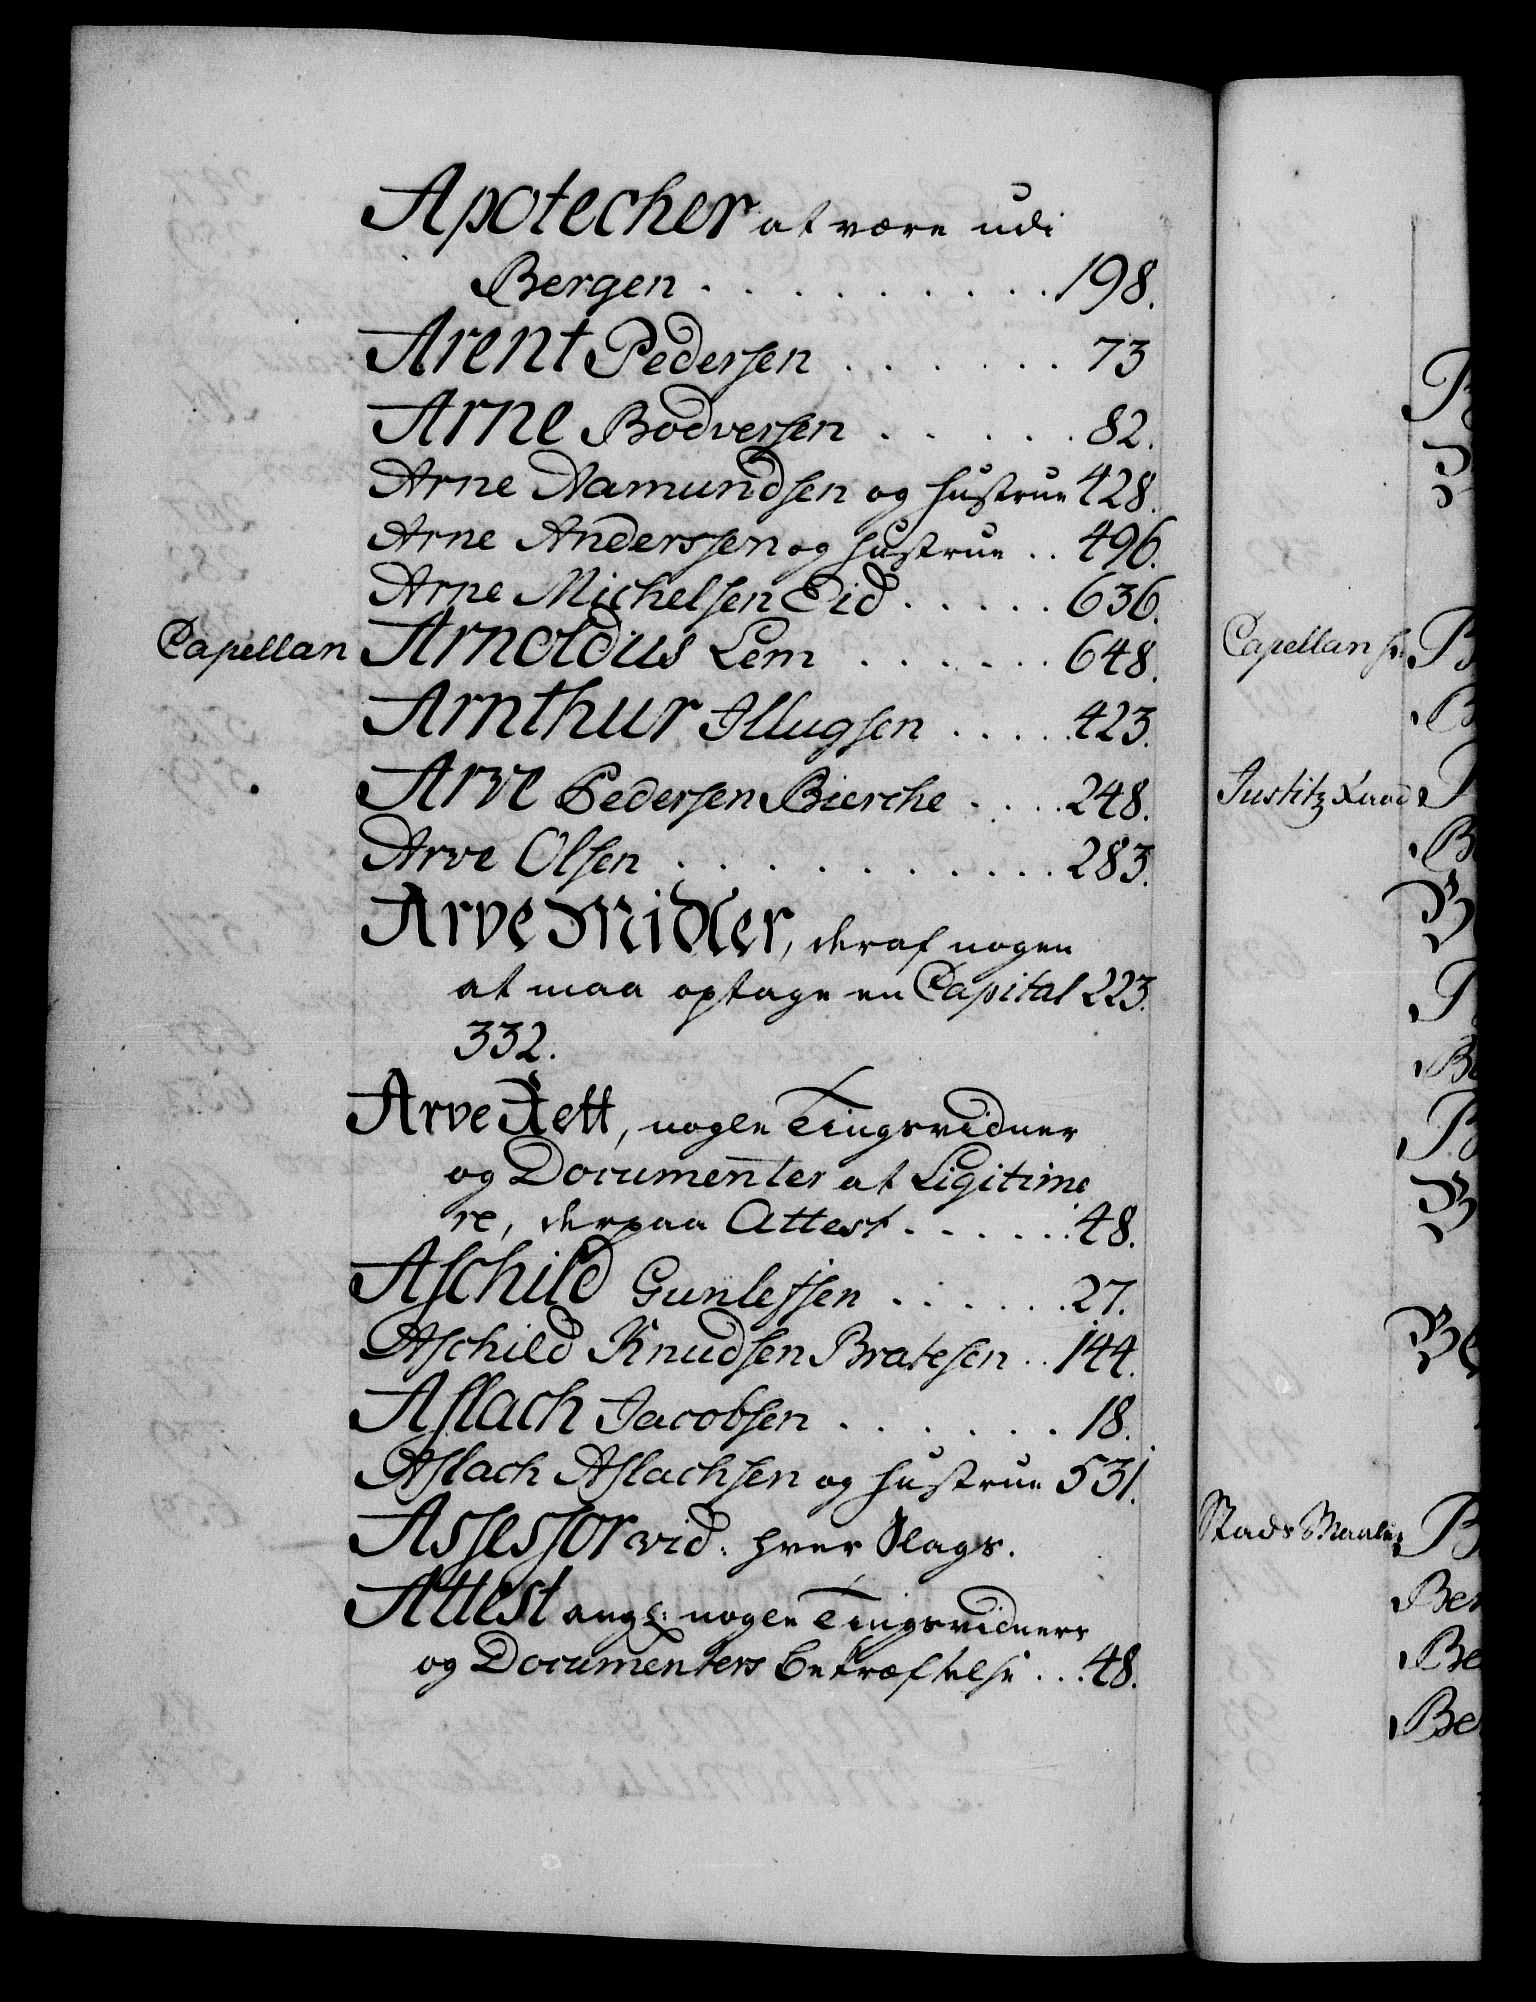 Apotecher at være udi
Bergen . . . . . . . . . . 198.
Arent Pedersen . . . . . . 73
Arne Bodversen . . . . . 82.
Arne Aamundsen og hustrue 428.
Arne Anderssen og hustrue . . 496.
Arne Michelsen Eid . . . . . 636.
Capellan Arnoldus Lem . . . . . . 648.
Arnthur Illugsen . . . . . 423.
Arve Pedersen Bierche . . . . 248.
Arve Olsen . . . . . . . . . . 283.
Arve Midler, deraf nogen
at maa optage en Capital 223.
332.
Arve Rett, nogle Tingsvidner
og Documenter at Ligitime
re, derpaa Attest . . . . . . 48.
Aschild Gunlefsen . . . . . . 27.
Aschild Knudsen Bratesen . . 144.
Aslach Jacobsen . . . . . . 18.
Aslach Aslachsen og hustrue 531.
Assessor vid: hver Slags.
Attest ang: nogle Tingsvidners
og Documenters Bekræftelse . . . 48.
Capellan
Justitz Raad
Stads
Ber
Be
Be